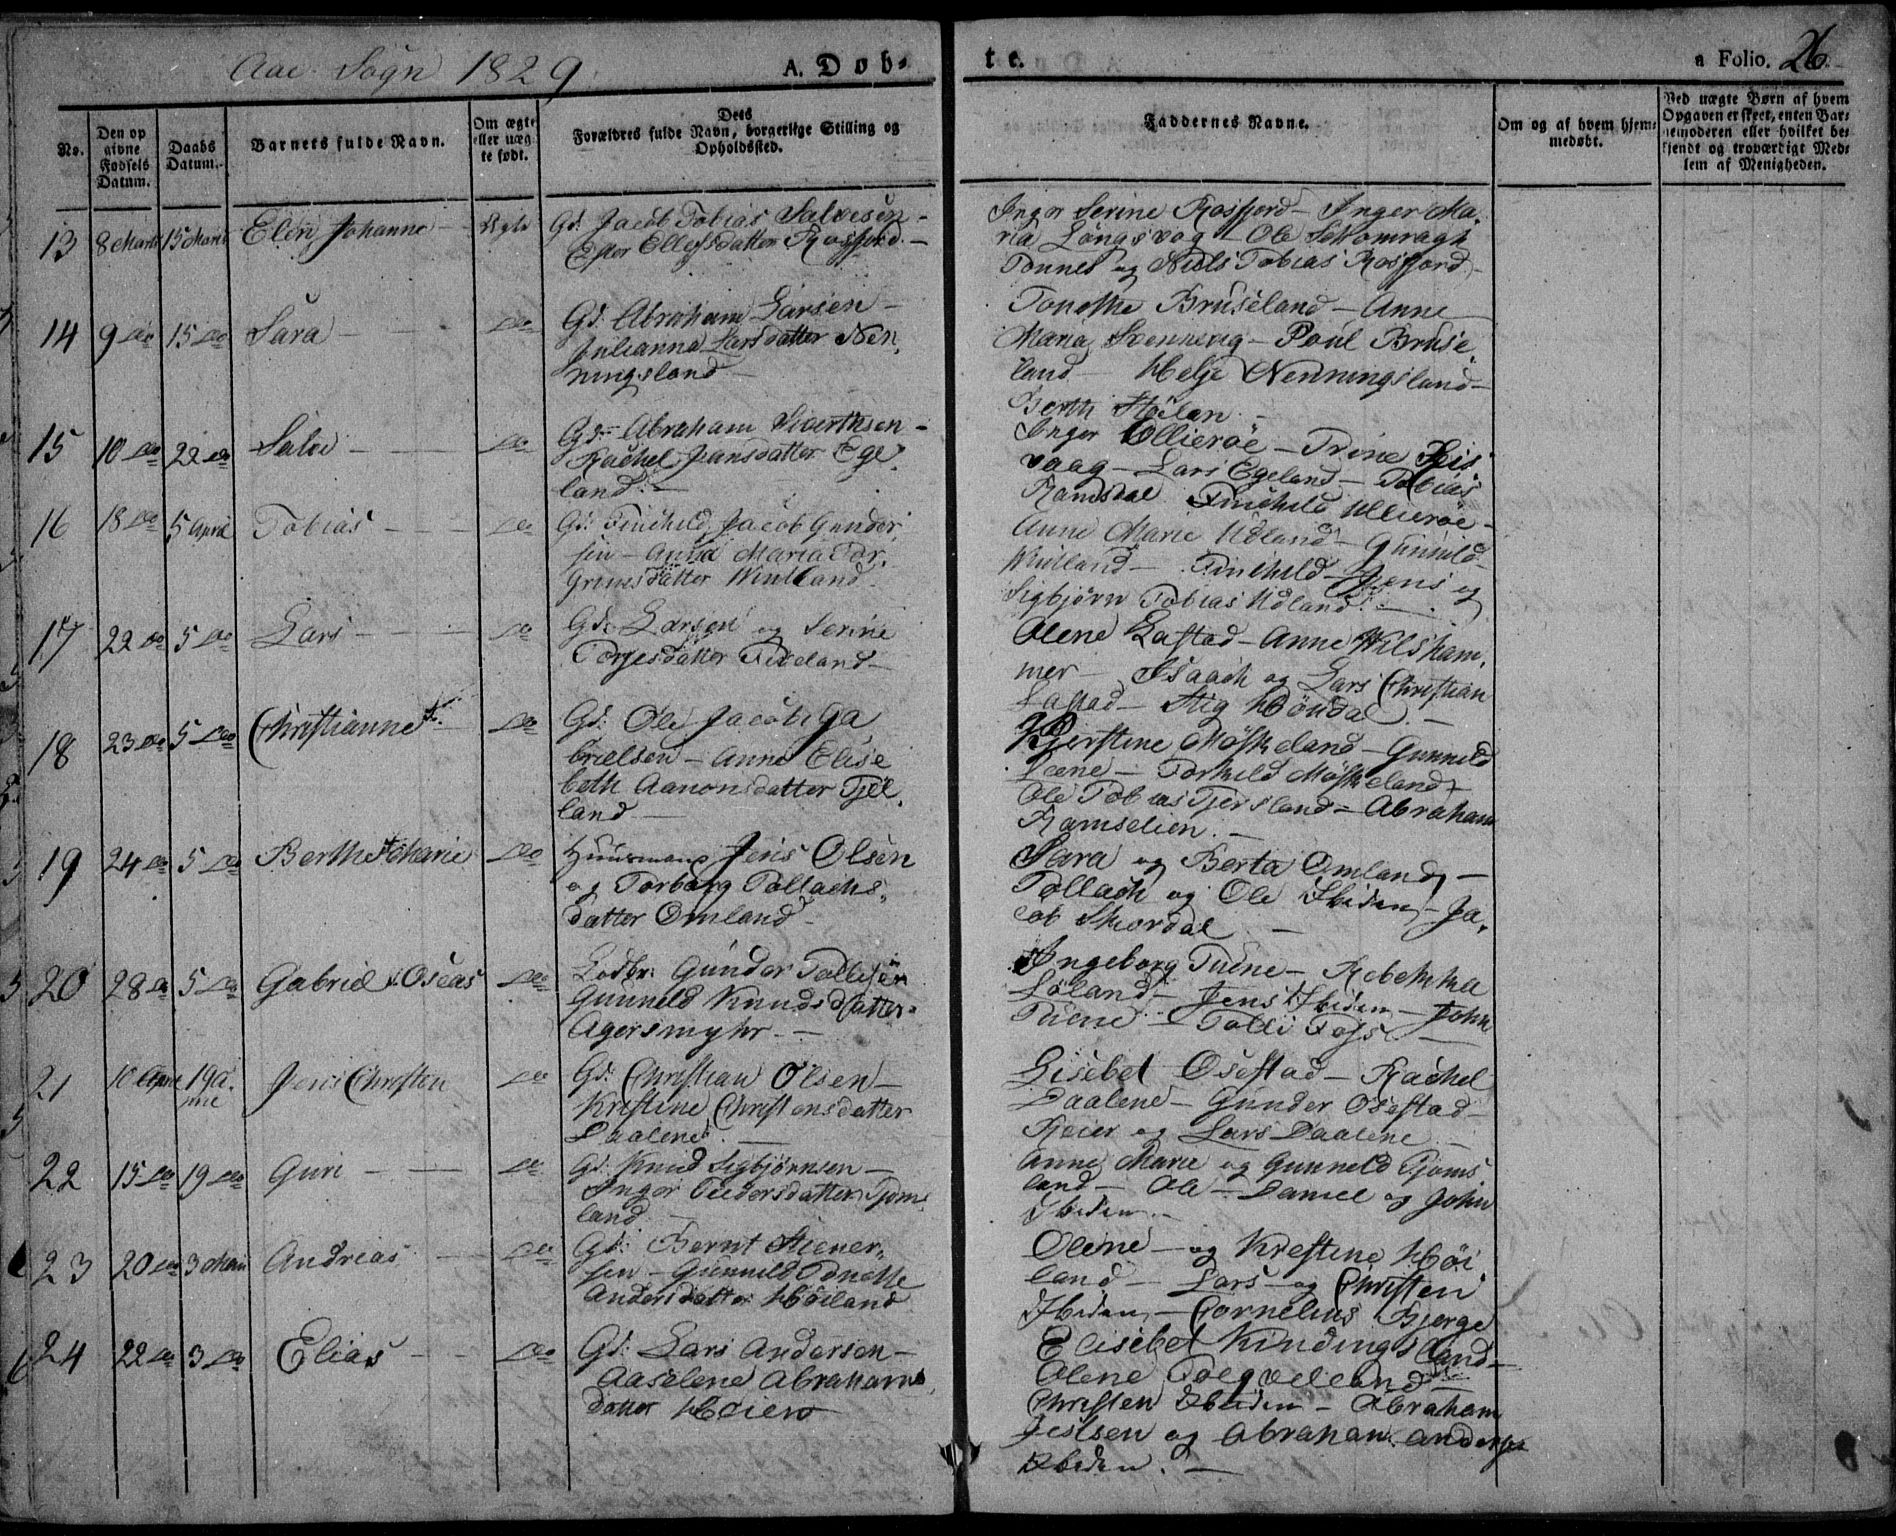 Aae Sogn 1829
A. Døb-
te.
a Folio. 26
No.
Den op
givne
Fødsels
Datum.
Daabs
Datum.
Barnets fulde Navn.
Om ægte
eller uæg-
te født.
Dets
Forældres fulde Navn, borgerlige Stilling og
Opholdssted.
Faddernes Navne.
Om og af hvem hjem-
medøbt.
Ved uægte Børn af hvem
Opgaven er skeet, enten Bar-
nemoderen eller hvilket be-
kjendt og troværdigt Med-
lem af Menigheden.
13 8 Marts 15 Marts Elen Johanne Ægte Gd: Jacob Tobias Salvesen -
Ester Ellefsdatter Rosfjord. -
Inger Serine Rosfjord - Inger Ma,
ria Løngsvog - Ole Schomragh
Tonnes og Niels Tobias Rosfjord -
14 9 do 15 do Sara - do Gd: Abraham Larsen -
Julianna Larsdatter Nen,
ningsland -
Tonethe Bruseland - Anne
Maria Svennevig - Poul Bruse,
land - Helje Nenningsland -
Berth Høilan. -
15 10 do 22 do Salve - do Gd: Abraham Sivertsen -
Rachel Jansdatter Ege,
land. -
Inger Ullierøe - Trine Spis
vaag - Lars Egeland - Tobias
Ramsdal Tinchild Ullierøe -
16 18 do 5 April Tobias - - do Gd: Tinchild Jacob Gunder,
sen - Anna Maria Tor,
grimsdatter Windland -
Anne Marie Udland - Gunnild
Windland - Tinchild - Jens og
Sigbjørn Tobias Udland. -
17 22 do 5 do Lars - - do Gd: Larsen og Serine
Torjesdatter Tiveland -
Olene Lastad - Anne Wilsham,
mer - Isaach og Lars Christian
Lastad - Stig Høndal. -
18 23 do 5 do Christianne - do Gd: Ole Jacob Ga,
brielsen - Anne Elise
beth Aanonsdatter Tjel,
land -
Kjerstine Møskeland - Gunneld
Lene - Torkild Møskeland -
Ole Tobias Tjersland - Abraham
Ramselien. -
19 24 do 5 do Berthe Marie do Huusmand Jens Olsen
og Torborg Tollachs,
datter Omland -
Sara og Berta Omland, -
Tollach og Ole Ibidem - Ja,
cob Skordal -
20 28 do 5 do Gabriel Oseas do Lodbr: Gunder Tollefsen
Gunneld Knudsdatter -
Agersmyhr. -
Ingeborg Tuene - Rebekka
Løland - Jens Ibidem - John
Tuene - Tolli Foss -
21 10 April 19 A,
pril Jens Christen do Gd: Christian Olsen -
Kristine Christensdatter
Daalene. -
Lisebet Osestad - Rachel
Daalene - Gunder Osestad -
Reier og Lars Daalene -
22 15 do 19 do Guri - - do Gd: Knud Sigbjørnsen -
Inger Pedersdatter Tjoms
land -
Anne Marie og Gunneld Tjoms
land - Ole - Daniel og John
Ibidem. -
23 20 do 3 Mai Andreas - do Gd: Bernt Stener,
sen - Gunneld Tonette
Andersdatter Høiland
Olene - og Krestine Høi
land - Lars - og Christen
Ibidem - Cornelius Bjerge
24 22 do 3 do Elias - - do Gd: Lars Andersen -
Aaselene Abrahams,
datter
Elisebet Kindingsland -
Olene
Christen Ibidem - Abraham
og Abraham Anders
Ibidem. -